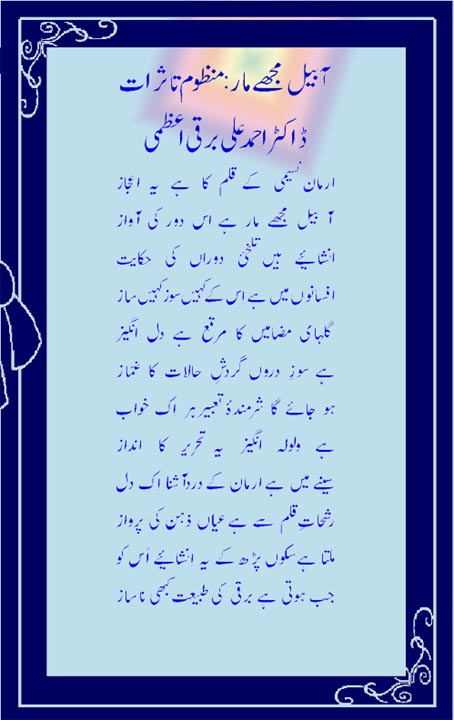 آ بیل مجھے مار: منظوم تاثرات
ڈاکٹر احمد علی برقی اعظمی
ارمان نسیمی کے قلم کا ہے یہ اعجاز
آ بیل مجھے مار ہے اس دور کی آواز
انشائیے ہیں تلخیٔ دوراں کی حکایت
افسانوں میں ہے اس کے کہیں سوز کہیں ساز
گلہای مضامیں کا مرقع ہے دل انگیز
ہے سوزِ دروں گردشِ حالات کا غماز
ہو جائے گا شرمندۂ تعبیر ہر اک خواب
ہے ولولہ انگیز یہ تحریر کا انداز
سینے میں ہے ارمان کے دردآشنا اک دل
رشحاتِ قلم سے ہے عیاں ذہن کی پرواز
ملتا ہے سکوں پڑھ کے یہ انشائیے اُس کو
جب ہوتی ہے برقی کی طبیعت کبھی ناساز